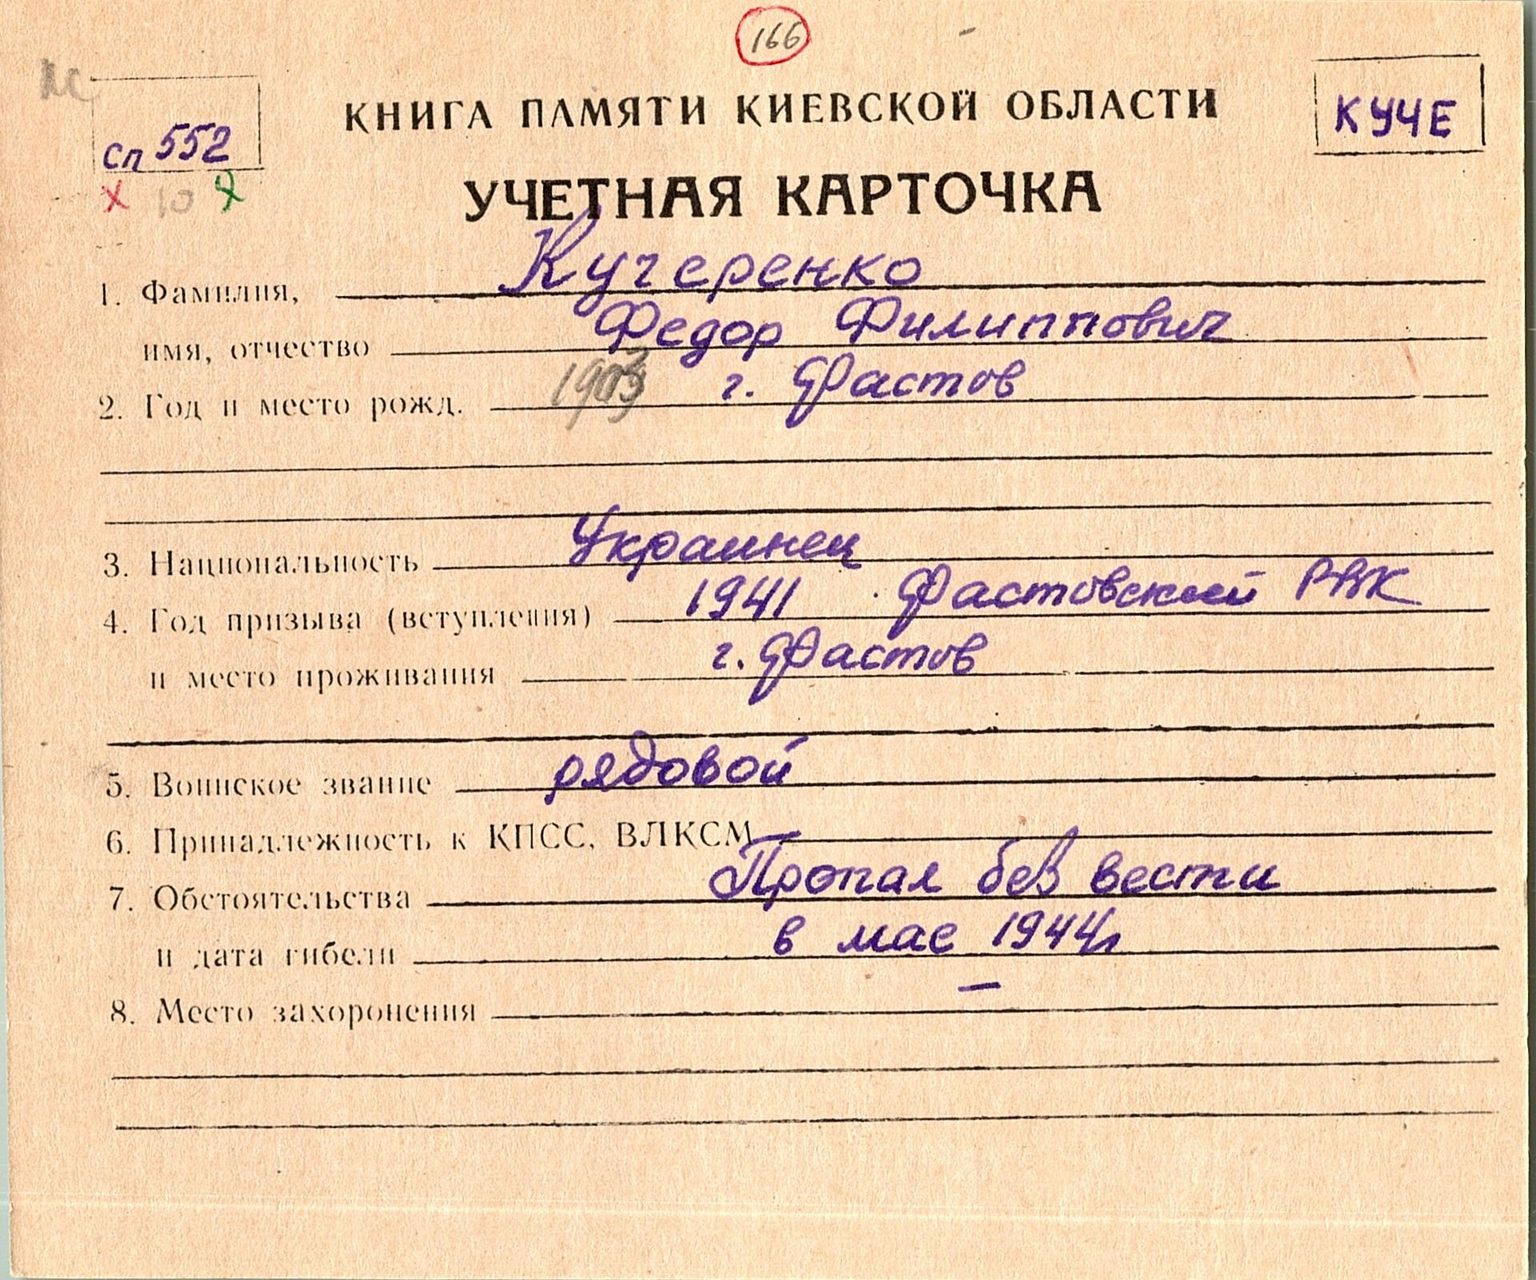 166
сп 552
КНИГА ПАМЯТИ КИЕВСКОЙ ОБЛАСТИ
КУЧЕ
10
УЧЕТНАЯ КАРТОЧКА
1. Фамилия, Кучеренко
имя, отчество Федор Филиппович
2. Год и место рожд. 1903 г. Фастов
3. Национальность Украинец
4. Год призыва (вступления) 1941 Фастовский РВК
и место проживания г. Фастов
5. Воинское звание рядовой
6. Принадлежность к КПСС, ВЛКСМ —
7. Обстоятельства Пропал без вести
и дата гибели в мае 1944г
8. Место захоронения —